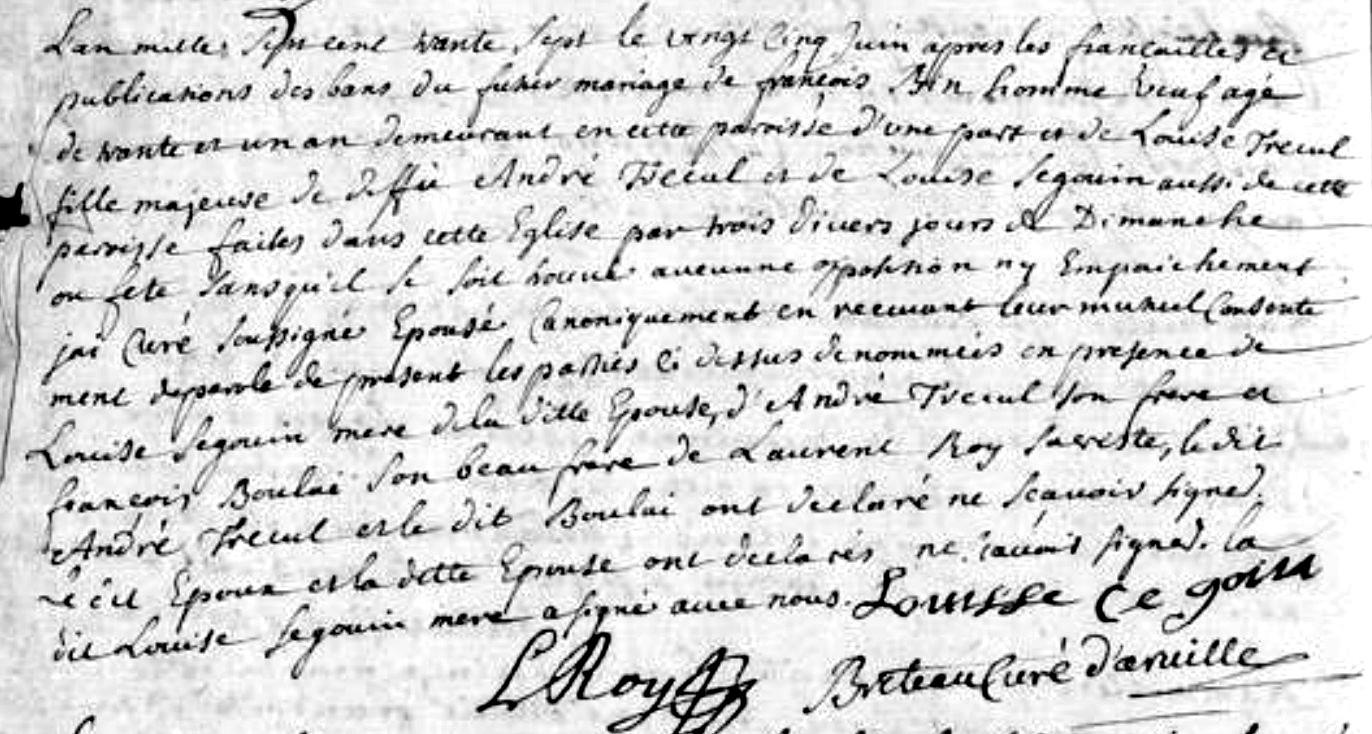 L'an mille sept cent trante sept le vingt cinq Juin apres les fiancailles et
publications des bans du futur mariage de francois Bin homme veuf agé
de trante et un an demeurant en cette paroisse d'une part et de Louise Treuul
fille majeuse de deffu André Treuul et de Louise Segouin aussi de cette
paroisse faites dans cette Eglise par trois divers jours de Dimanche
ou fete sans qu'il se soit trouvé aucunne oppossition ny Empaichement
jai Curé soussigné Epousé Canoniquement en recevant leur mutuel Consente
ment de parole de present les parties ci dessus denommeés en presence de
Louise Segouin mere de la ditte Epouse, d'André Treuul son frere et
francois Boulai son beau frere de Laurent Roy sacriste, le dit
André Treuul et le dit Boulai ont declaré ne sçavoir signer.
Le dit Epoux et la ditte Epouse ont declarés ne sçavoir signer. la
dit Louise Segouin mere a signé avec nous. Louisse Ce goin
L Roy Breteau Curé d'aruille